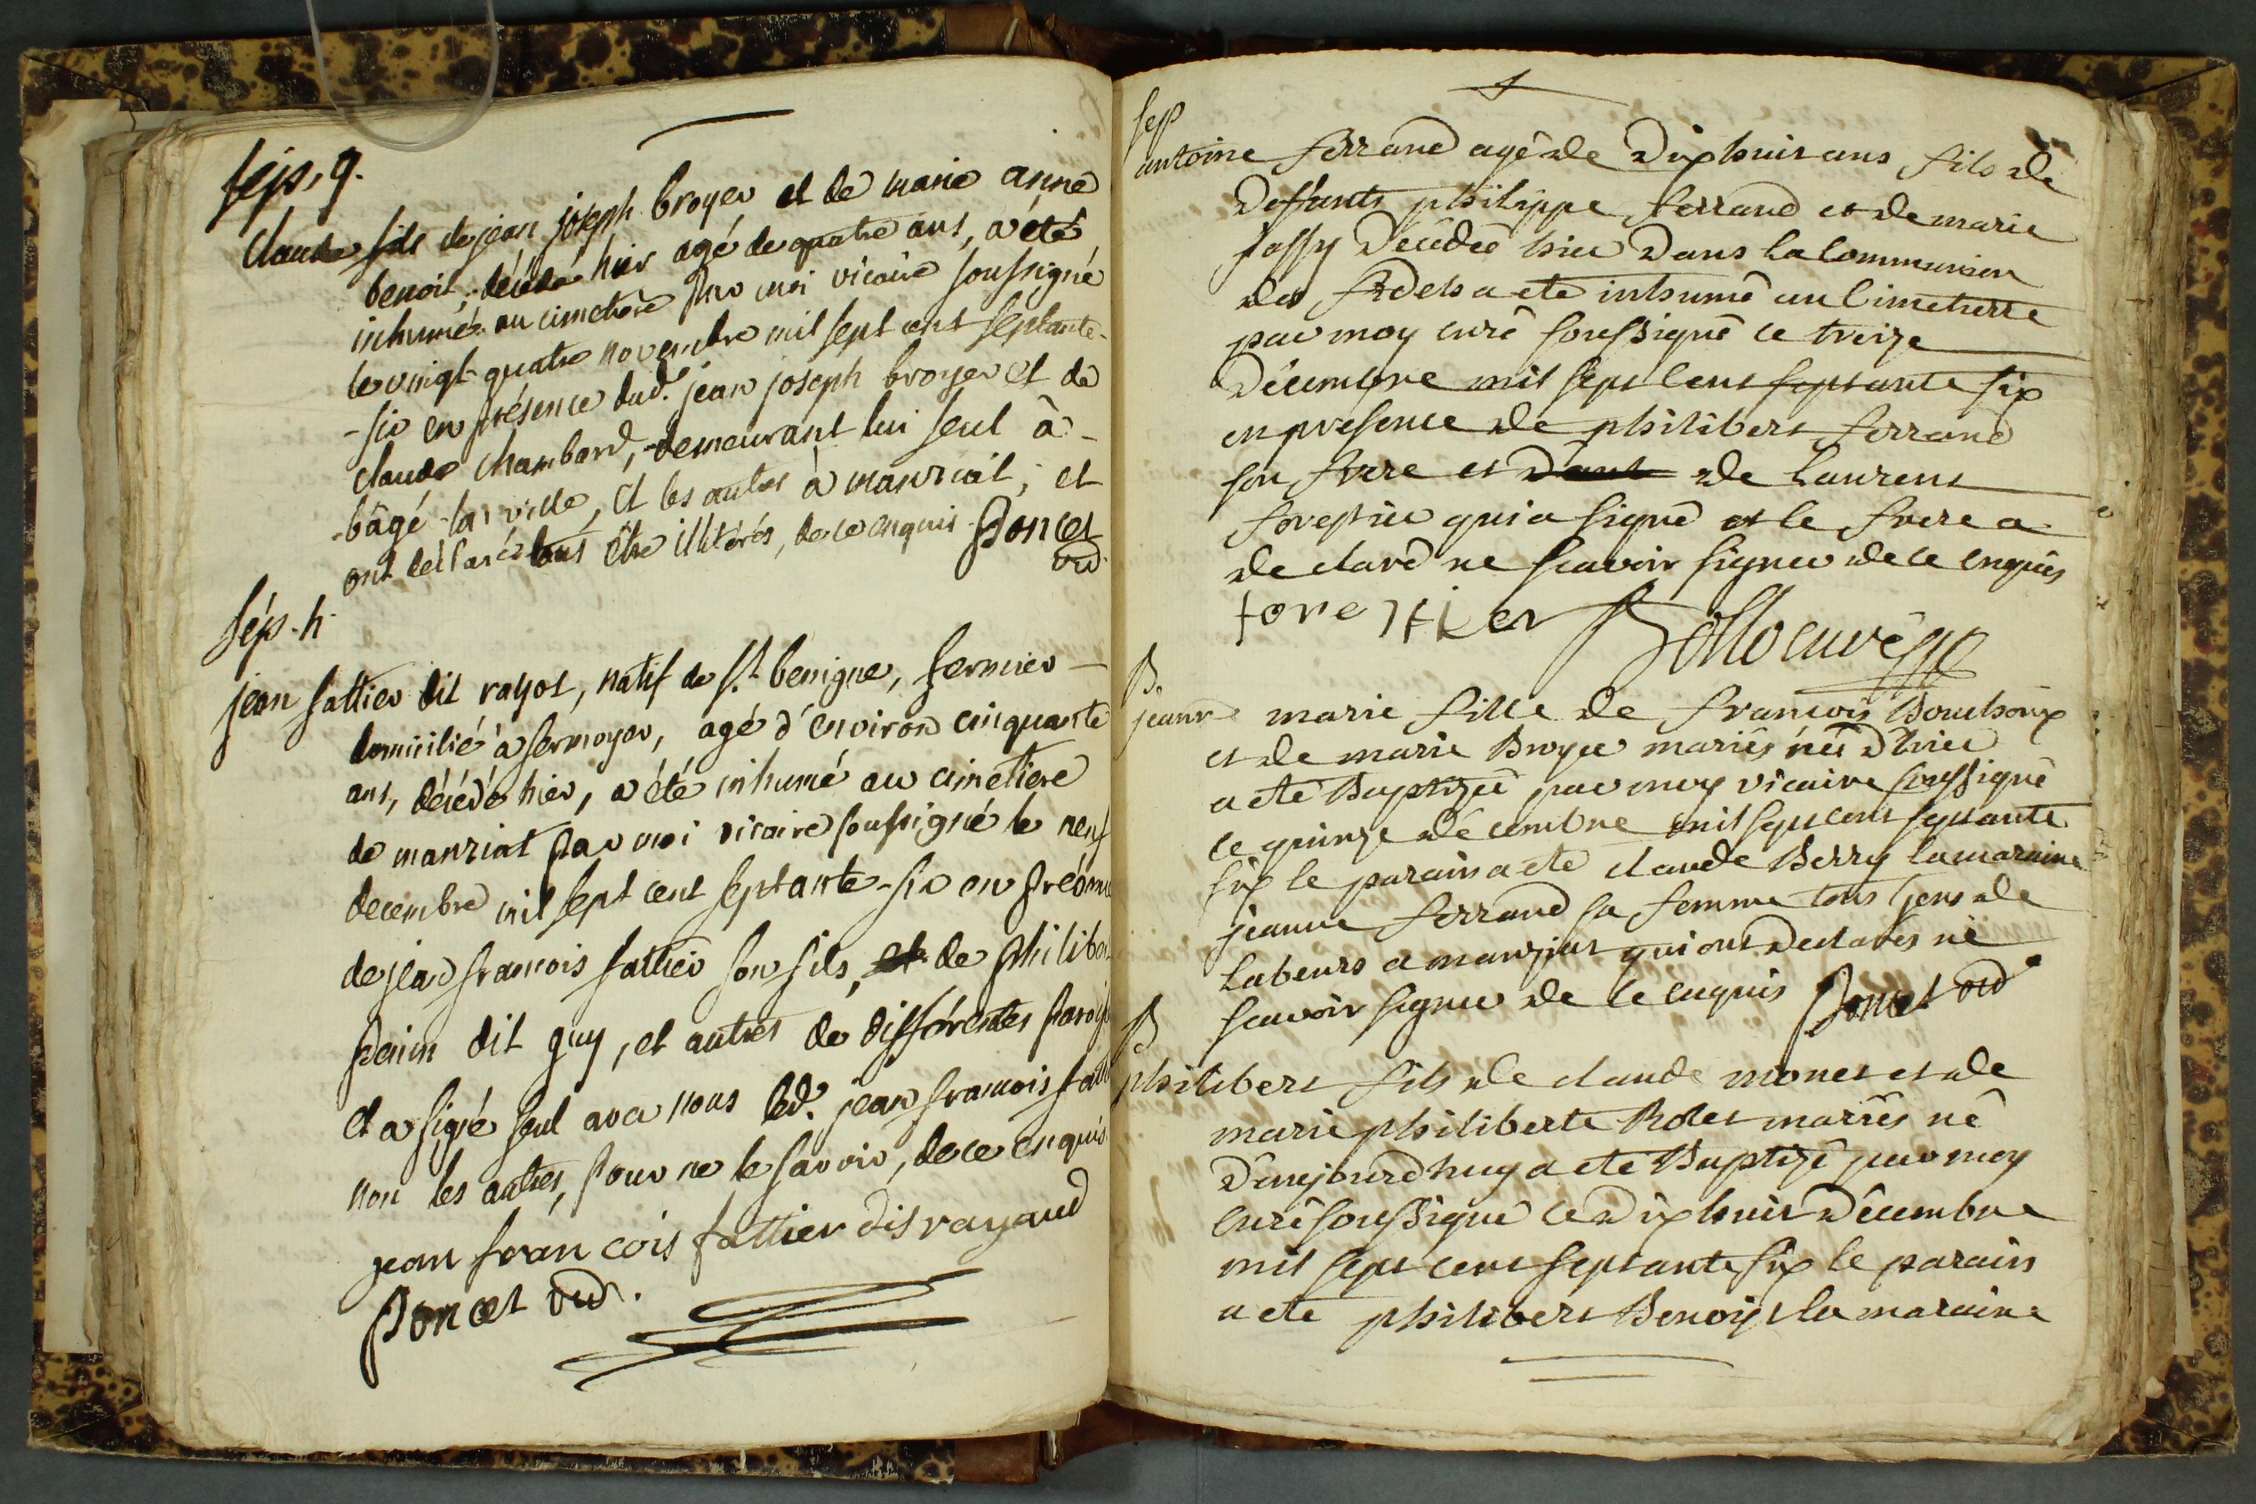 sép. g.
Claude fils de jean joseph broyer et de marie anne
benoit, décédé hier agé de quatre ans, a été
inhumé au cimetiere par moi vicaire soussigné
le vingt-quatre novembre mil sept cent septante-
-six en présence dud. jean joseph broyer et de
claude chambard, demeurant lui seul à-
-bâgé-la-ville, et les autres à manziat, et
ont déclaré tous être illiterés, de ce enquis Poncet
vic.
sép. h.
jean sattier dit rayot, natif de st. benigne, fermier
domicilié à sermoyer, agé d'environ cinquante
ans, décédé hier, a été inhumé au cimetiere
de manziat par moi vicaire soussigné le neuf
decembre mil sept cent septante-six en présence
de jean francois sattier son fils, et de philibert
perin dit guy, et autres de différentes paroiss
et a signé seul avec nous led. jean francois satti
non les autres, pour ne le savoir, de ce enquis
jean francois fattier dit rayaud
Poncet vic.
sep
antoine ferrand agê de dixhuit ans fils de
deffunts philippe ferrand et de marie
jossy décédé hier dans la communion
des fidels a ete inhumê au cimetierre
par moy curê soussignê ce treize
décembre mil sept cent septante six
en presence de philibert ferrand
son frere et dant de laurent
forestier qui a signê et le frere a
declarê ne scavoir signer de ce enquis
forestier Bolloeuvre
B.
jeanne marie fille de francois Bouchoux
et de marie Broyer mariês née d'hier
a etê Baptizée par moy vicaire soussignê
ce quinze décembre mil sept cent septante
six le parain a ete claude Berry la maraine
jeanne ferrand sa femme tous gens de
labeurs a manziat qui ont declarés ne
scavoir signer de ce enquis Poncet vic
B
philibert fils de claude monet et de
marie philiberte Rolet mariês nê
d'aujourd'huy a ete Baptizê par moy
curê soussignê ce dixhuit décembre
mil sept cent septante six le parain
a ete philibert Benoist la maraine